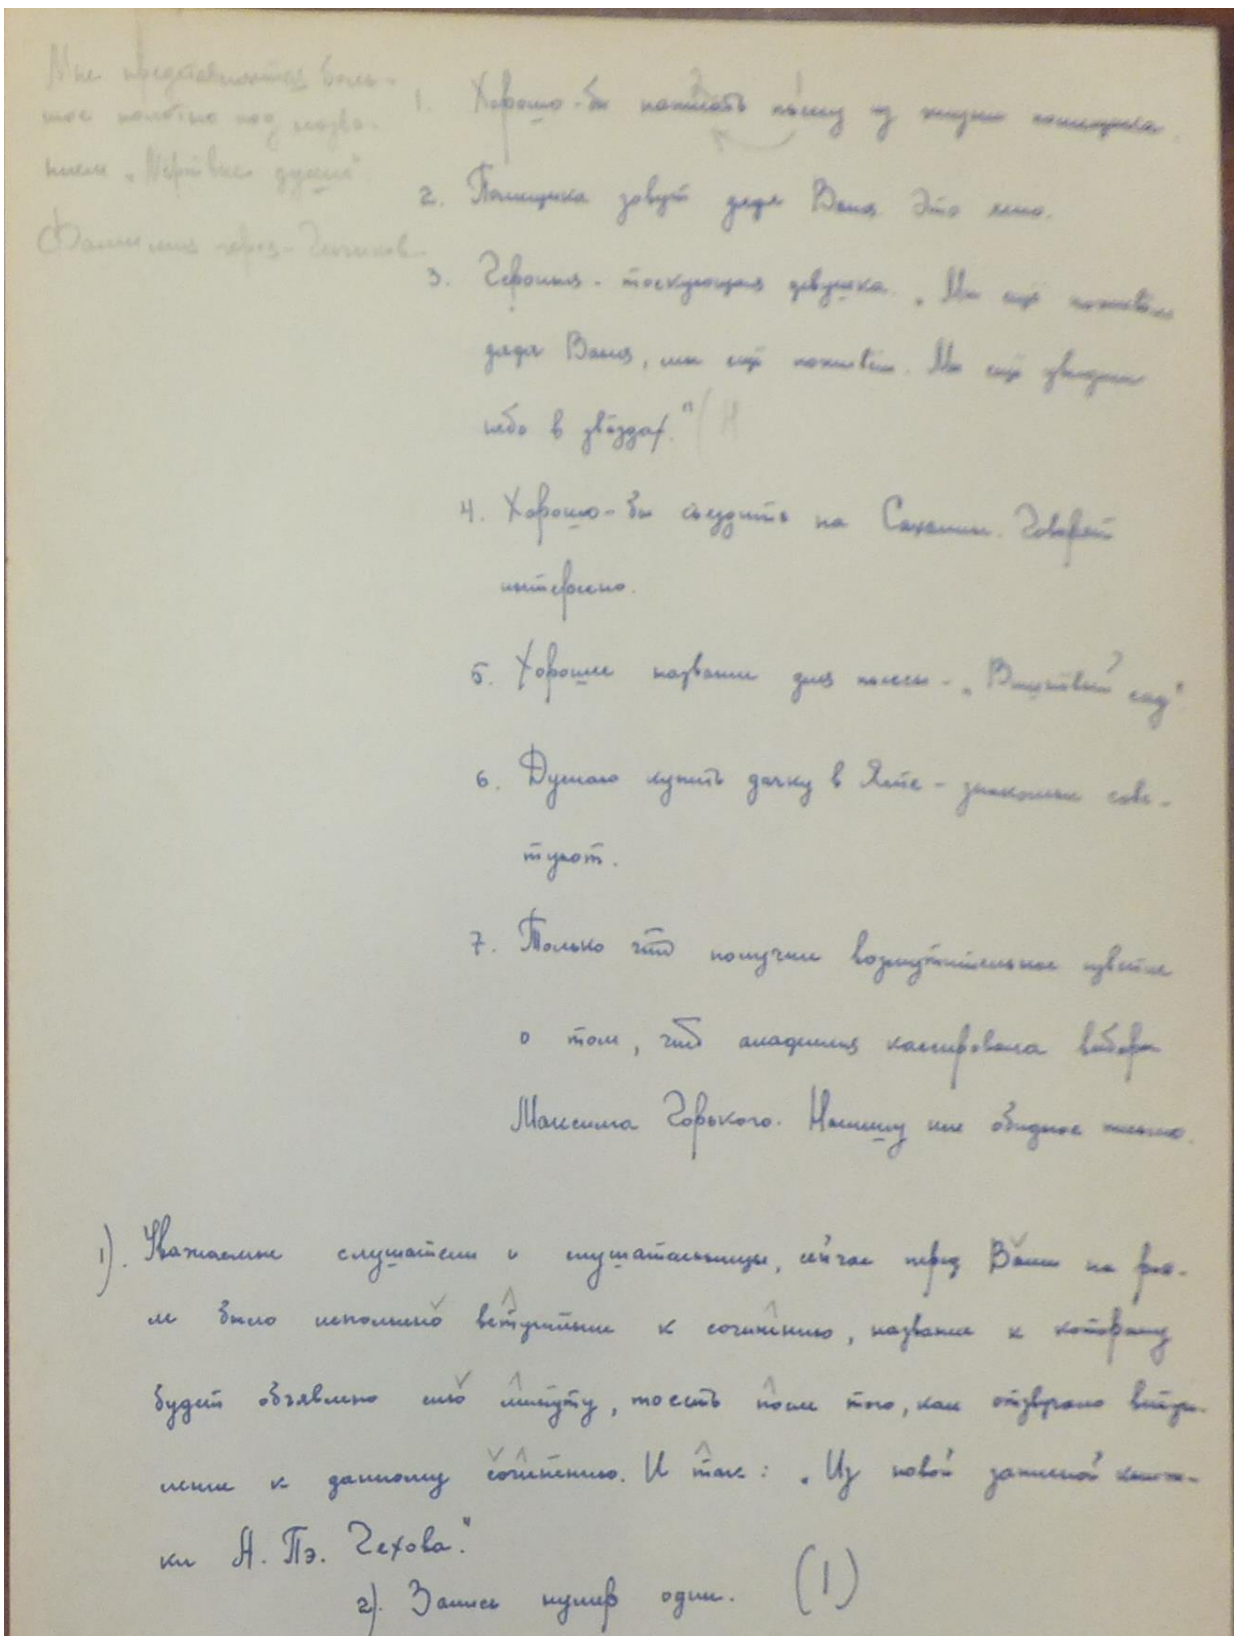 Мне представляется боль-
шое полотно под назва-
нием „Мёртвые души".
Фамилия героя - Чичиков
1. Хорошо-бы написать пьесу из жизни помещика.
2. Помещика зовут дядя Ваня. Это ясно.
3. Героиня - тоскующая девушка. „Мы ещё поживём
дядя Ваня, мы ещё поживём. Мы ещё увидим
небо в звёздах."
4. Хорошо-бы съездить на Сахалин. Говорят
интересно.
5. Хорошее название для пьесы - „Вишнёвый сад"
6. Думаю купить дачку в Ялте - знакомые сове-
туют.
7. Только что получил возмутительное известие
о том, что академия кассировала выборы
Максима Горького. Напишу им обидное письмо.
1). Уважаемые слушатели и слушательницы, сейчас перед Вами на роя-
ле было исполнено вступление к сочинению, название к которому
будет объявлено сию минуту, тоесть после того, как отзвучало вступ-
ление к данному сочинению. И так: „Из новой записной книж-
ки А. Пэ. Чехова."
2). Запись нумер один. (1)